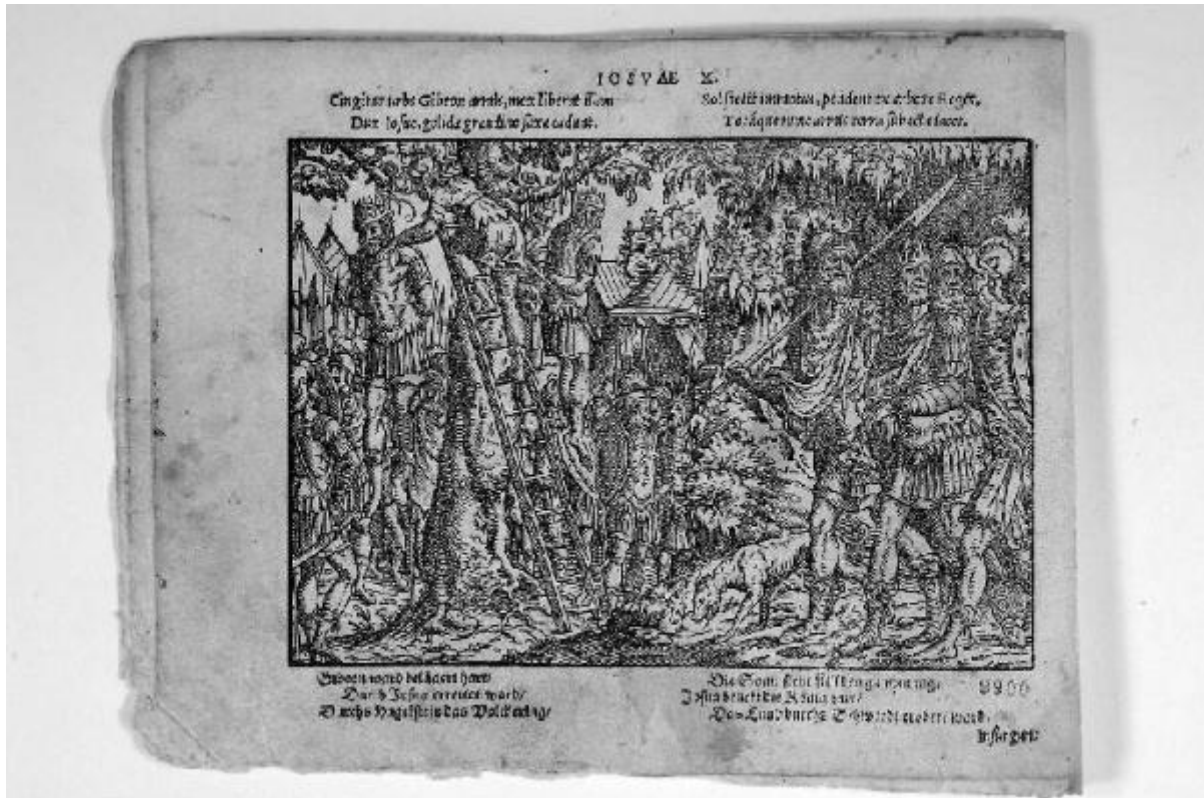 IOSVAE X.
Cingitur urbs Gibeon armis, mox liberat illam
Dux Iosue, gelida grandine saxa cadunt.
Sol stetit immotus, pendent ex arbore Reges,
Totáque tunc armis terra subacta iacet.
Gibeon ward belägert hart/
Durch Josua errettet ward/
Durchs Hagelstein das Volck
Die Sonn steht still den gantzen tag,
Josua henckt
Das Landt durchs Schwerdt erobert ward.
9906